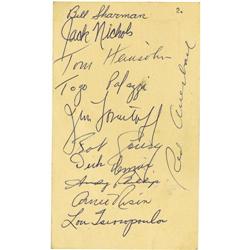 Bill Sharman
2.
Jack Nichols
Tom Heinsohn
Togo Palazzi
Jim Loscutoff
Bob Cousy
Dick Hemric
Andy Phillip
Arnie Risen
Lou Tsioropoulos
Red Auerbach